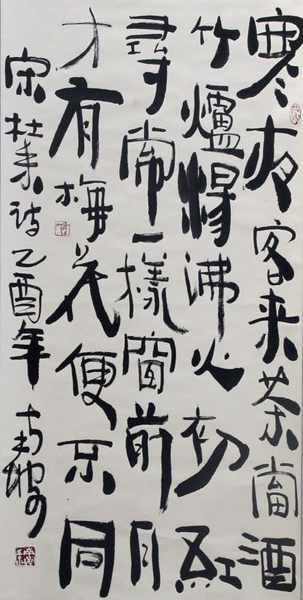 寒夜客来茶當酒
竹爐湯沸火初紅
尋常一樣窗前月
才有梅花便不同
宋杜耒詩乙酉年